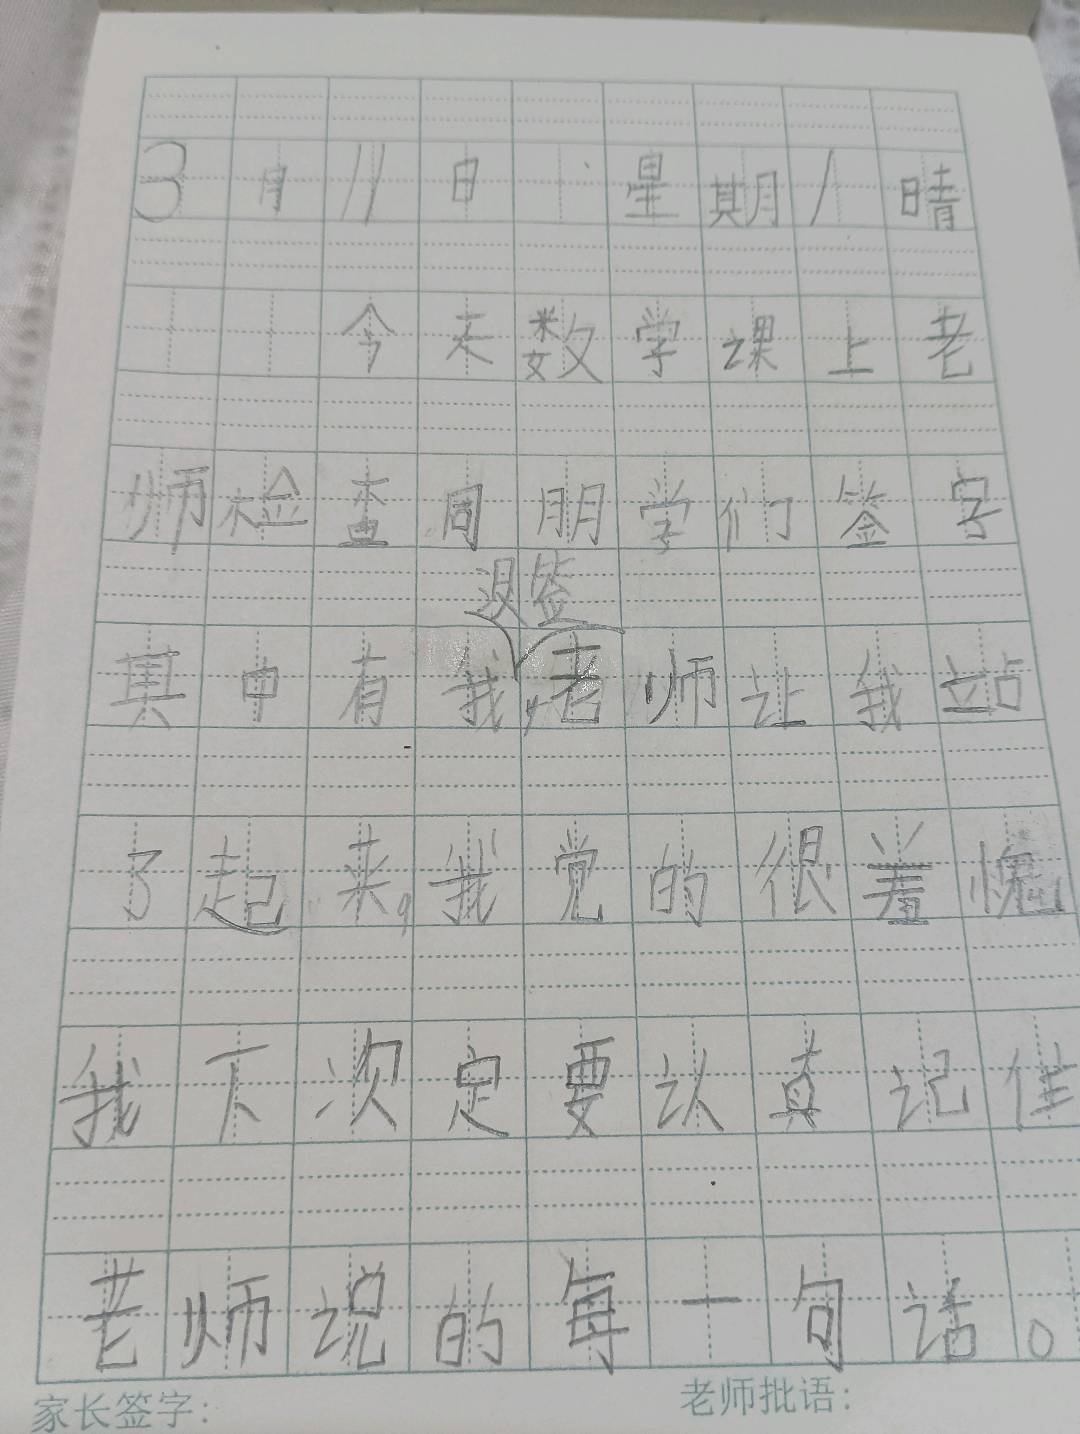 3月11日 星期1 晴
今天数学课上老
师检查周朋学们签字
没签
其中有我,老师让我站
了起来,我觉的很羞愧
我下次定要认真记住
老师说的每一句话。
家长签字:
老师批语: